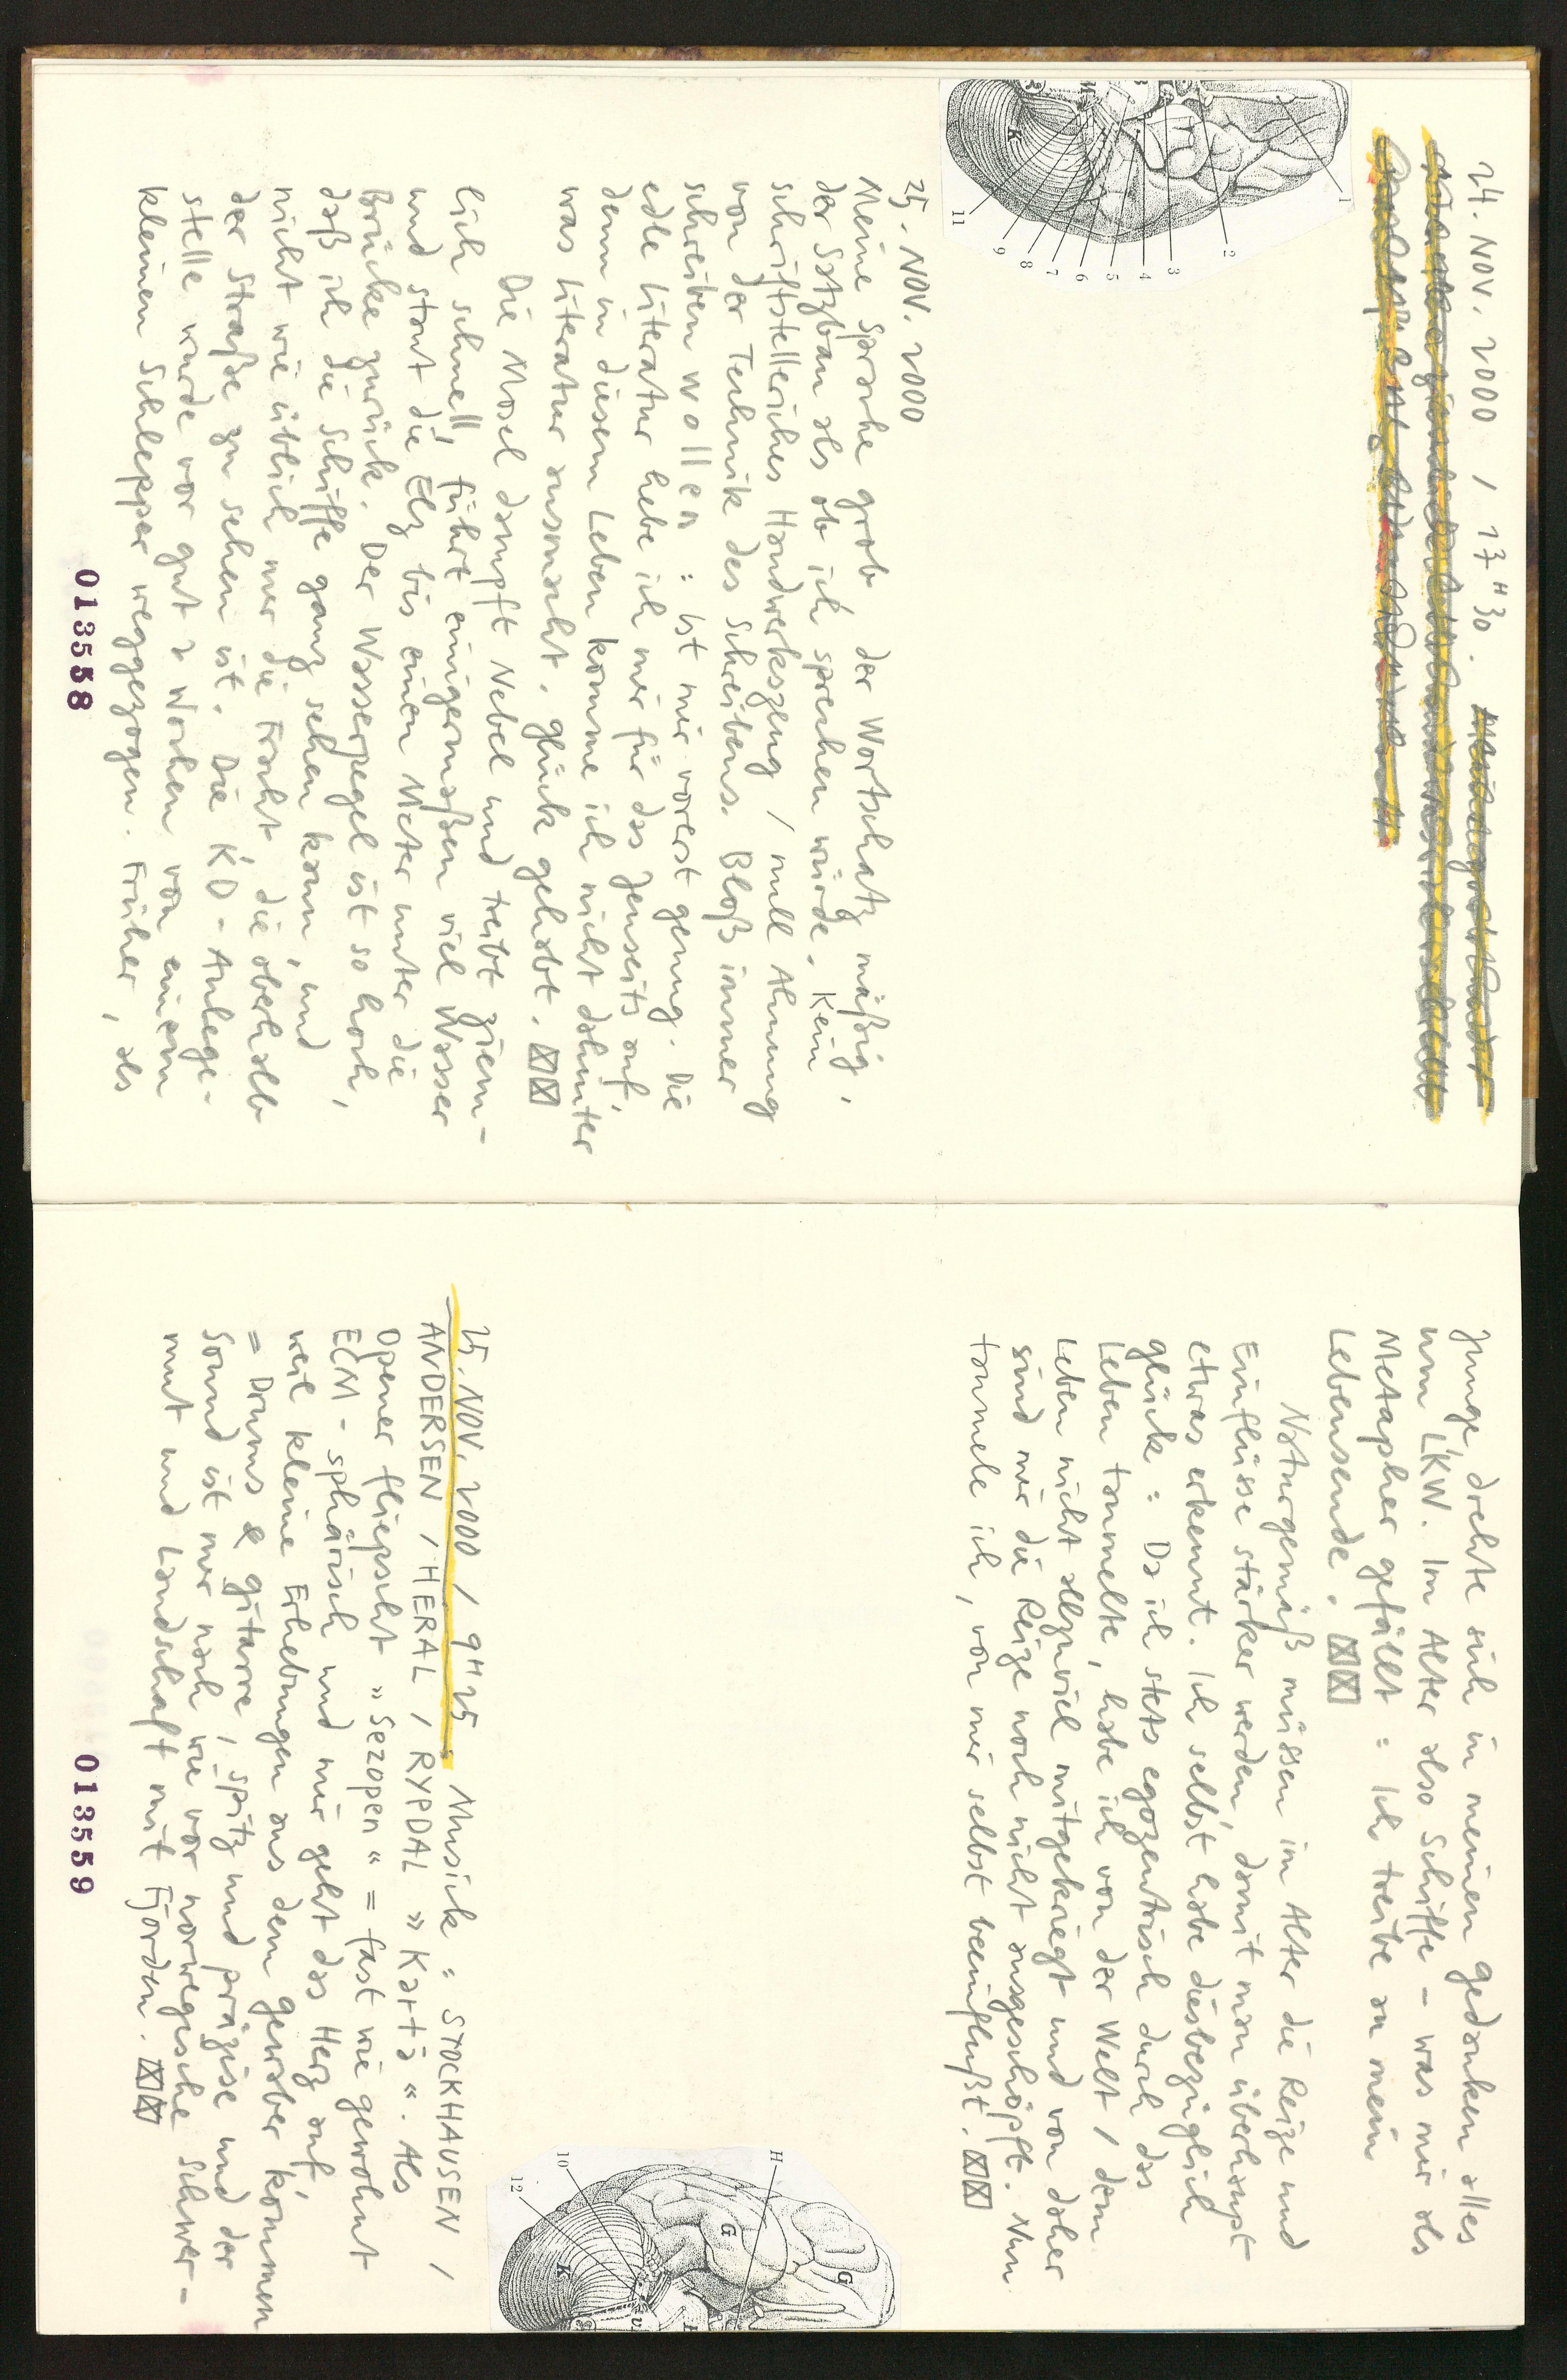 24. NOV. 2000 / 17H30.
1
2
3
4
5
6
7
8
9
11
K
25. NOV. 2000
Meine Sprache grob der Wortschatz mäßig,
der Satzbau als ob ich sprechen würde. Kein
schriftstellerisches Handwerkszeug / null Ahnung
von der Technik des Schreibens. Bloß immer
schreiben wollen : ist mir vorerst genug. Die
edle Literatur hebe ich mir für das Jenseits auf,
denn in diesem Leben komme ich nicht dahinter
was Literatur ausmacht. Glück gehabt.
Die Mosel dampft Nebel und treibt ziem-
lich schnell, führt einigermaßen viel Wasser
und staut die Elz bis einen Meter unter die
Brücke zurück. Der Wasserpegel ist so hoch,
daß ich die Schiffe ganz sehen kann, und
nicht wie üblich nur die Fracht, die oberhalb
der Straße zu sehen ist. Die K'D-Anlege-
stelle wurde vor gut 2 Wochen von einem
kleinen Schlepper weggezogen. Früher, als
013558
Junge drehte sich in meinen Gedanken alles
um L'KW. Im Alter also Schiffe - was mir als
Metapher gefällt : Ich treibe an mein
Lebensende.
Naturgemäß müssen im Alter die Reize und
Einflüsse stärker werden, damit man überhaupt
etwas erkennt. Ich selbst habe diesbezüglich
Glück : Da ich stets egozentrisch durch das
Leben taumelte, habe ich von der Welt / dem
Leben nicht allzuviel mitgekriegt und von daher
sind mir die Reize noch nicht ausgeschöpft. Nun
taumele ich, von mir selbst beeinflußt.
H
G
G
K
10
12
25. NOV. 2000 / 9H25 : Musick : STOCKHAUSEN /
ANDERSEN / HERAL / RYPDAL » Kartā «. Als
Opener fliepscht » Sezopen « = fast wie gewohnt
ECM-sphärisch und mir geht das Herz auf,
weil kleine Erhebungen aus dem Gewaber kommen
= Drums & Gitarre, spitz und präzise und der
Sound ist mir nach wie vor norwegische Schwer-
mut und Landschaft mit Fjorden.
013559